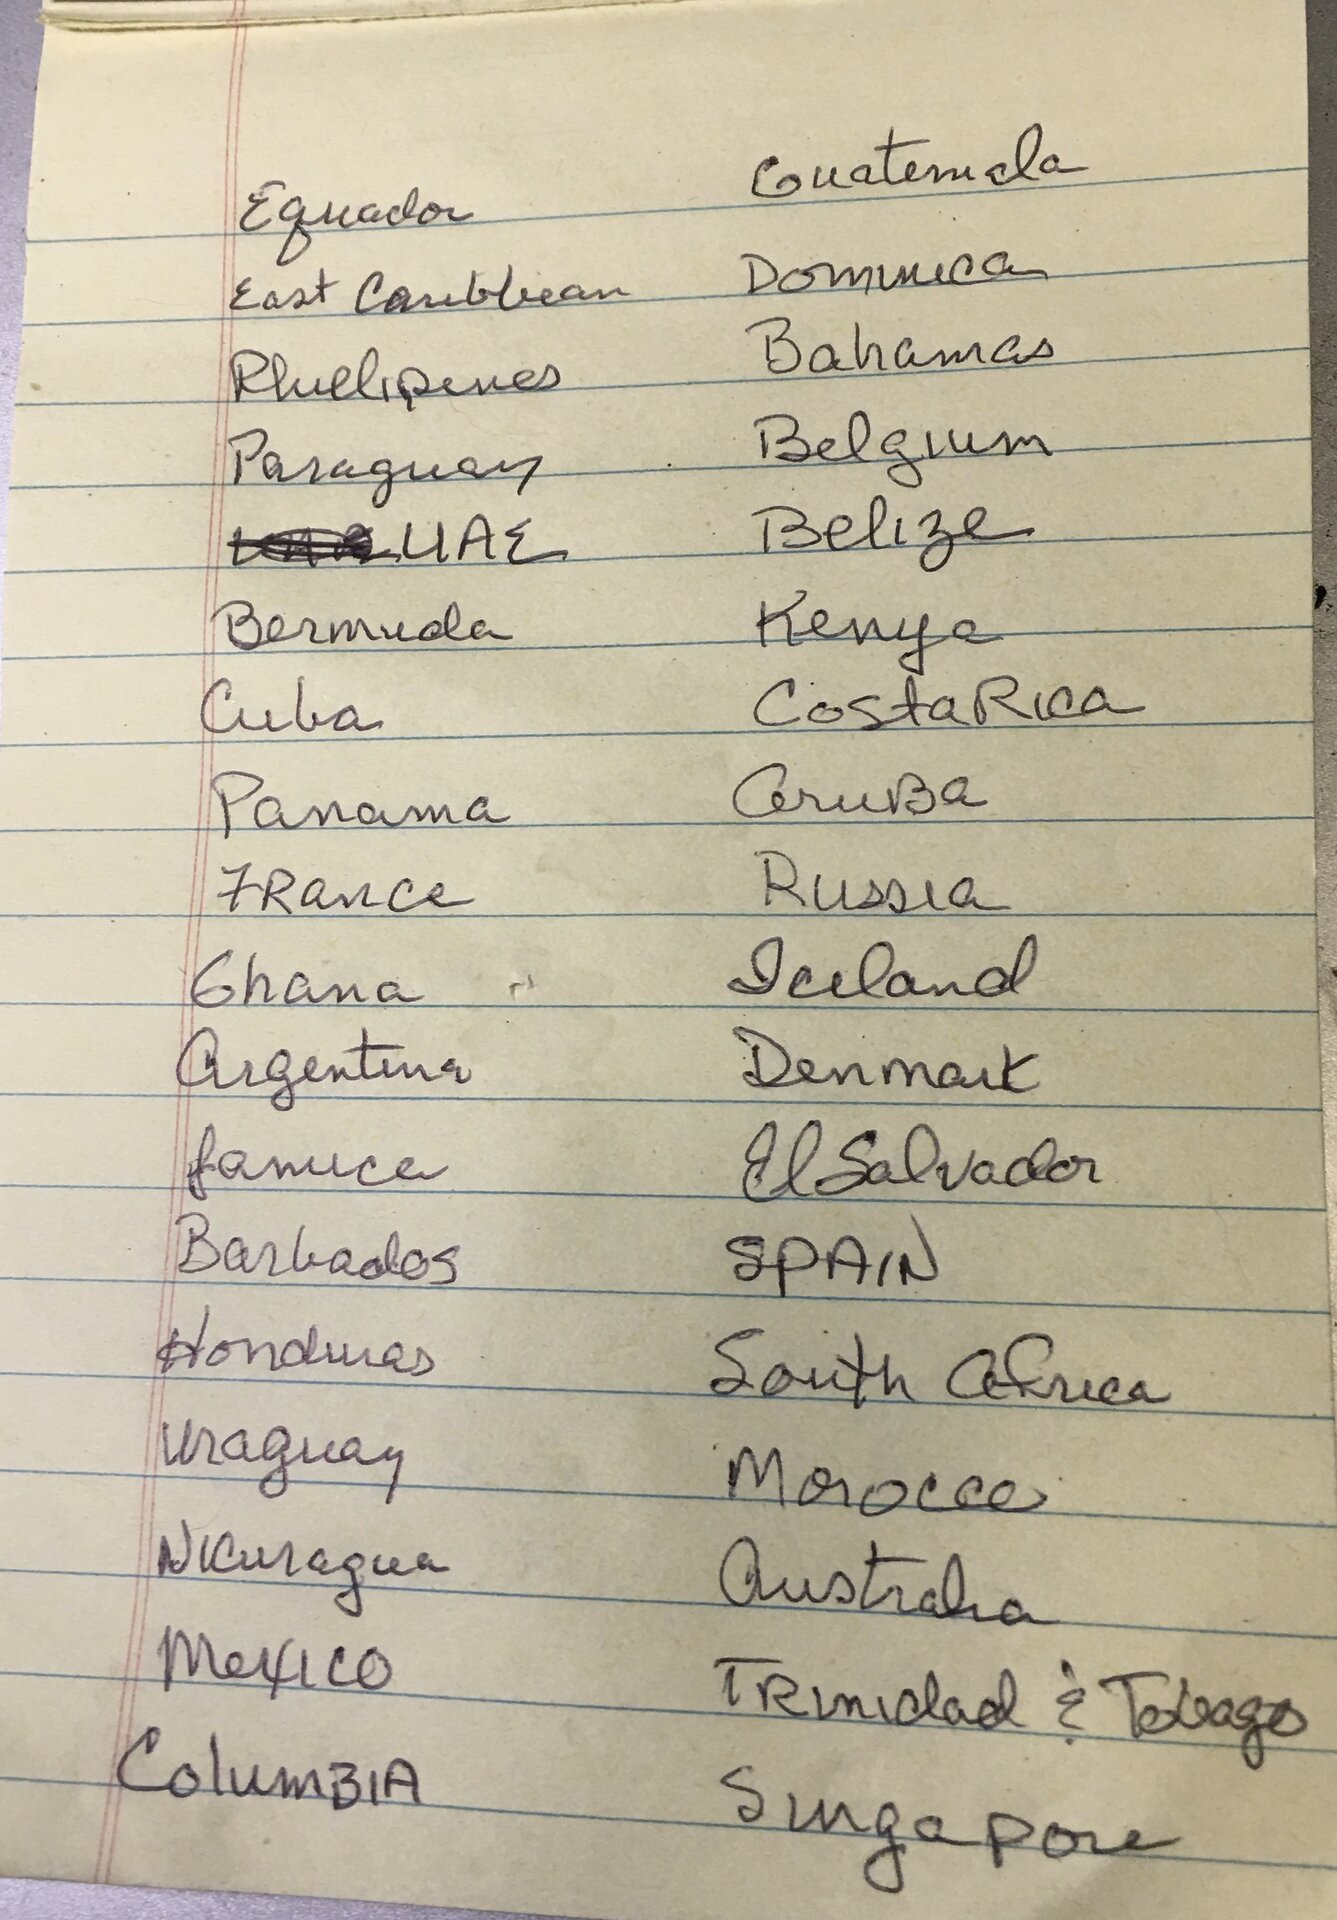 Equador
East Caribbean
Phillipines
Paraguay
UAE
Bermuda
Cuba
Panama
FRance
Ghana
Argentina
Jamica
Barbados
Honduras
Uraguay
Nicuragua
Mexico
ColumBIA
Guatemala
Dominica
Bahamas
Belgium
Belize
Kenya
Costa Rica
AruBa
Russia
Iceland
Denmark
El Salvador
SPAIN
South Africa
Morocco
Australia
TRinidad & Tobago
Singapore